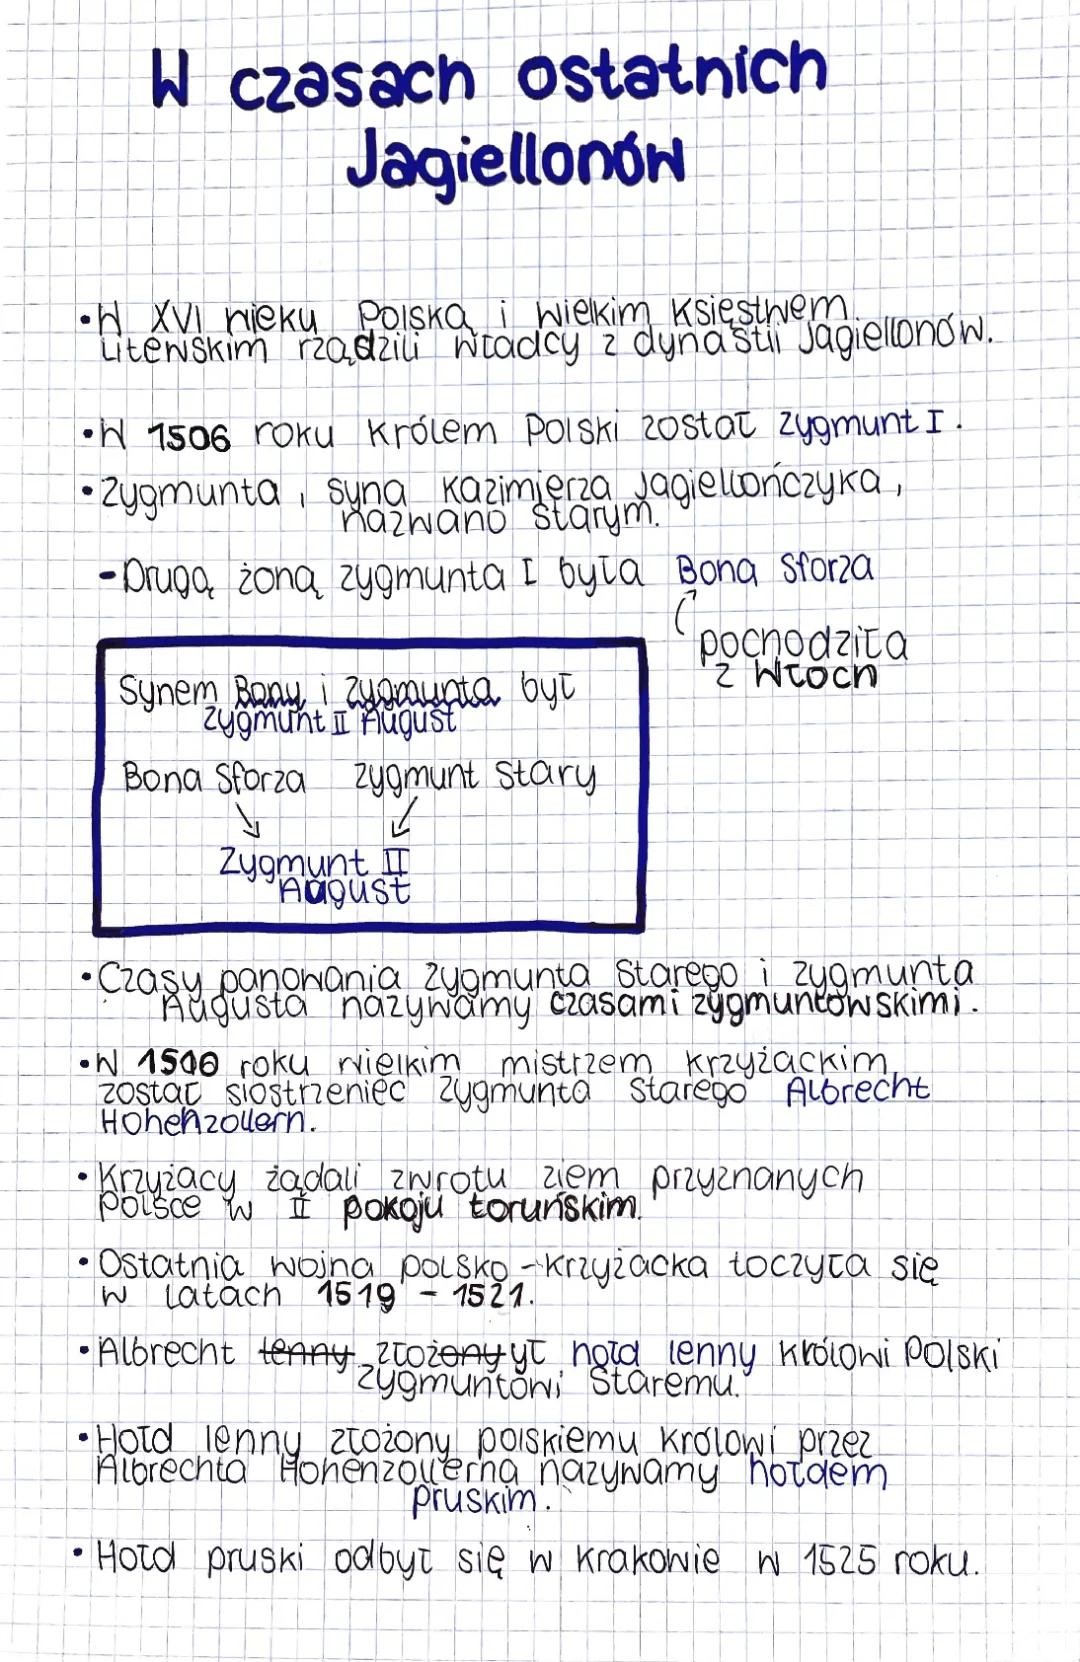 W czasach ostatnich
Jagiellonów
•W XVI wieku Polską i Wielkim Księstwem
Litewskim rządzili władcy z dynastii Jagiellonów.
•W 1506 roku królem Polski został Zygmunt I.
•Zygmunta, syna Kazimierza Jagiellończyka,
nazwano Starym.
-Drugą żoną Zygmunta I była Bona Sforza
pochodziła
z Włoch
Synem Bony i Zygmunta był
Zygmunt II August
Bona Sforza Zygmunt Stary
Zygmunt II
August
•Czasy panowania Zygmunta Starego i Zygmunta
Augusta nazywamy czasami zygmuntowskimi.
•W roku wielkim mistrzem krzyżackim
został siostrzeniec Zygmunta Starego Albrecht
Hohenzollern.
•Krzyżacy żądali zwrotu ziem przyznanych
Polsce w II pokoju toruńskim.
•Ostatnia wojna polsko-krzyżacka toczyła się
w latach 1519 - 1521.
•Albrecht lenny złożonyył hołd lenny królowi Polski
Zygmuntowi Staremu.
•Hołd lenny złożony polskiemu królowi przez
Albrechta Hohenzollerna nazywamy hołdem
pruskim.
•Hołd pruski odbył się w Krakowie w 1525 roku.